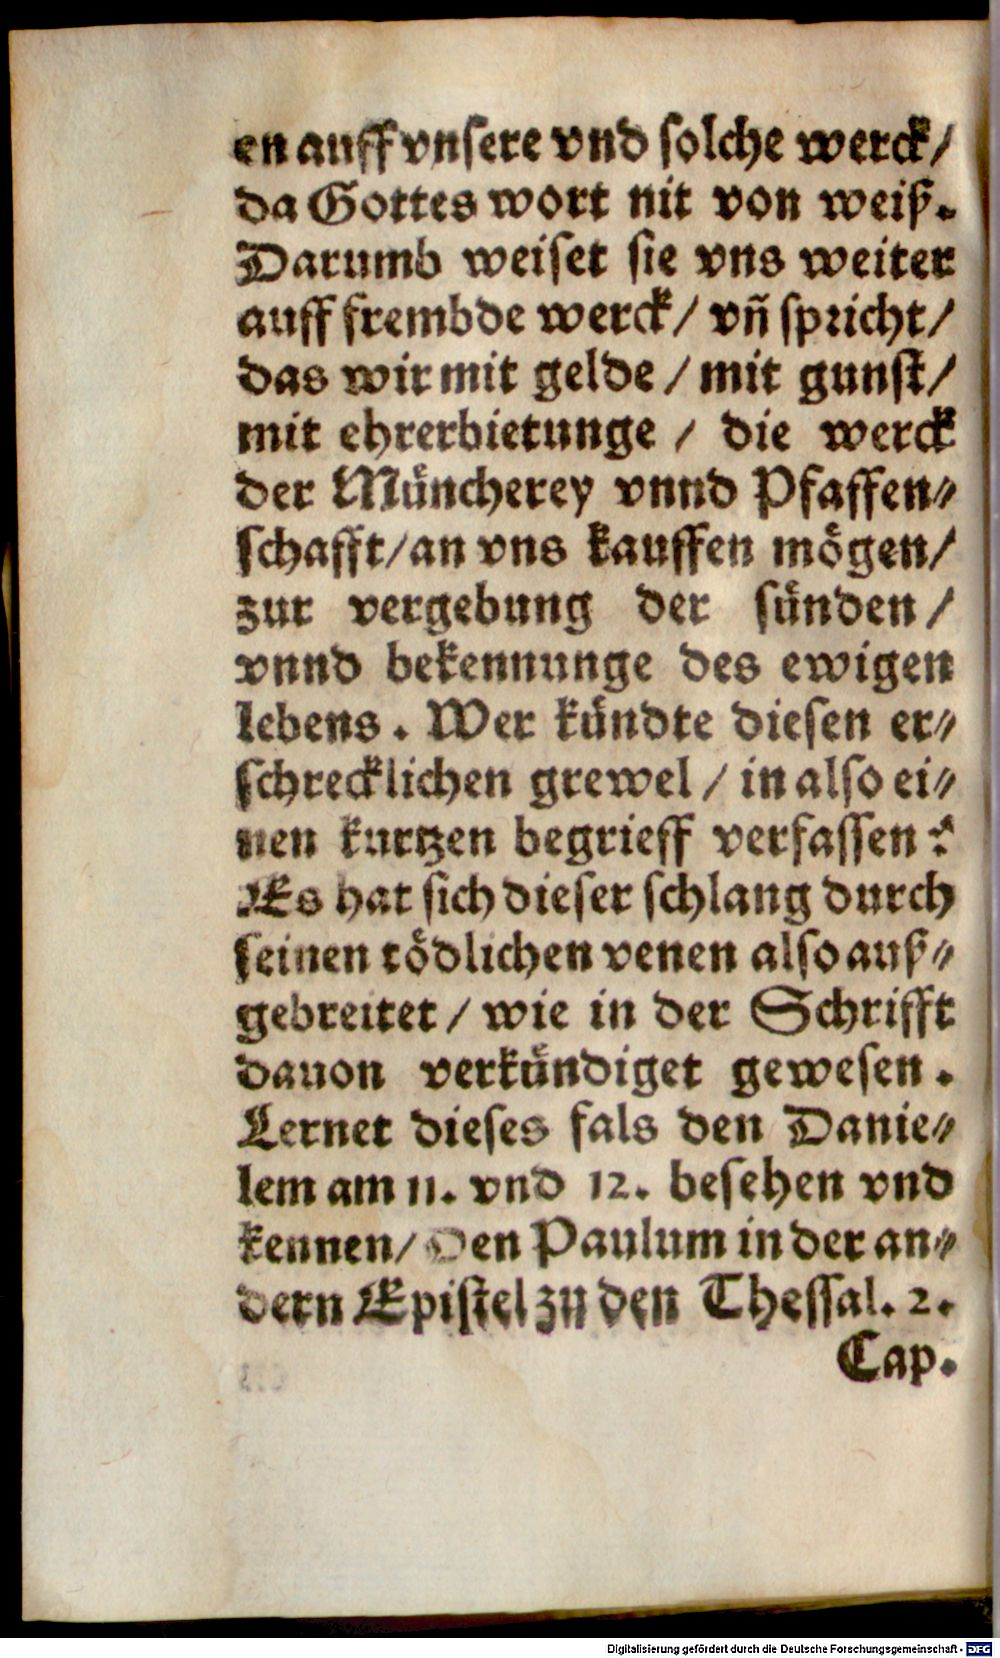 en auff vnsere vnd solche werck/
da Gottes wort nit von weiß.
Darumb weiset sie vns weiter
auff frembde werck/ vñ spricht/
das wir mit gelde / mit gunst/
mit ehrerbietunge / die werck
der Müncherey vnnd Pfaffen⸗
schafft/an vns kauffen mögen/
zur vergebung der sünden/
vnnd bekennunge des ewigen
lebens. Wer kündte diesen er⸗
schrecklichen grewel / in also ei⸗
nen kurtzen begrieff verfassen?
Es hat sich dieser schlang durch
seinen tödlichen venen also auß⸗
gebreitet / wie in der Schrifft
dauon verkündiget gewesen.
Lernet dieses fals den Danie⸗
lem am 11. vnd 12. besehen vnd
kennen/ Den Paulum in der an⸗
dern Epistel zu den Thessal. 2.
Cap.
Digitalisierung gefördert durch die Deutsche Forschungsgemeinschaft - DFG